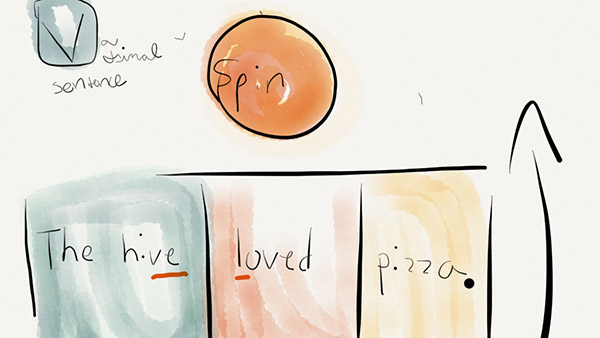 V
sentence
Spin
The hive loved pizza.